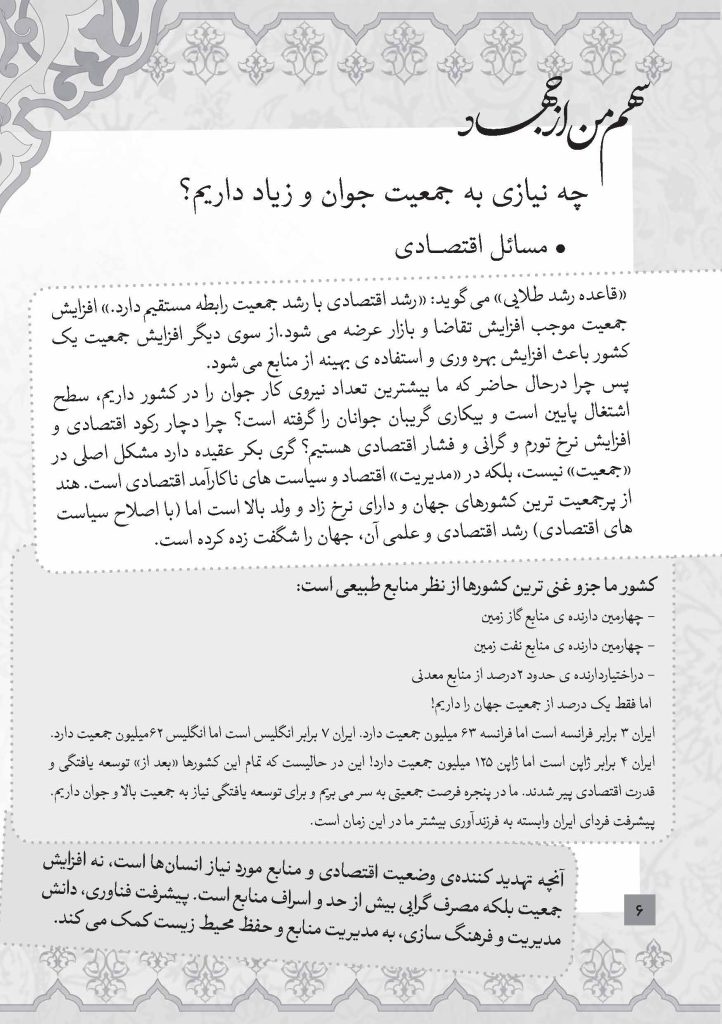 سهم من از جهاد
چه نیازی به جمعیت جوان و زیاد داریم؟
• مسائل اقتصـــادی
«قاعده رشد طلایی» می‌گوید: «رشد اقتصادی با رشد جمعیت رابطه مستقیم دارد.» افزایش
جمعیت موجب افزایش تقاضا و بازار عرضه می شود.از سوی دیگر افزایش جمعیت یک
کشور باعث افزایش بهره وری و استفاده ی بهینه از منابع می شود.
پس چرا درحال حاضر که ما بیشترین تعداد نیروی کار جوان را در کشور داریم، سطح
اشتغال پایین است و بیکاری گریبان جوانان را گرفته است؟ چرا دچار رکود اقتصادی و
افزایش نرخ تورم و گرانی و فشار اقتصادی هستیم؟ گری بکر عقیده دارد مشکل اصلی در
«جمعیت» نیست، بلکه در «مدیریت» اقتصاد و سیاست های ناکارآمد اقتصادی است. هند
از پرجمعیت ترین کشورهای جهان و دارای نرخ زاد و ولد بالا است اما (با اصلاح سیاست
های اقتصادی) رشد اقتصادی و علمی آن، جهان را شگفت زده کرده است.
کشور ما جزو غنی ترین کشورها از نظر منابع طبیعی است:
- چهارمین دارنده ی منابع گاز زمین
- چهارمین دارنده ی منابع نفت زمین
- دراختیاردارنده ی حدود ۲درصد از منابع معدنی
اما فقط یک درصد از جمعیت جهان را داریم!
ایران ۳ برابر فرانسه است اما فرانسه ۶۳ میلیون جمعیت دارد. ایران ۷ برابر انگلیس است اما انگلیس ۶۲میلیون جمعیت دارد.
ایران ۴ برابر ژاپن است اما ژاپن ۱۲۵ میلیون جمعیت دارد! این در حالیست که تمام این کشورها «بعد از» توسعه یافتگی و
قدرت اقتصادی پیر شدند. ما در پنجره فرصت جمعیتی به سر می بریم و برای توسعه یافتگی نیاز به جمعیت بالا و جوان داریم.
پیشرفت فردای ایران وابسته به فرزندآوری بیشتر ما در این زمان است.
آنچه تهدید کننده‌ی وضعیت اقتصادی و منابع مورد نیاز انسان‌ها است، نه افزایش
جمعیت بلکه مصرف گرایی بیش از حد و اسراف منابع است. پیشرفت فناوری، دانش
مدیریت و فرهنگ سازی، به مدیریت منابع و حفظ محیط زیست کمک می کند.
۶